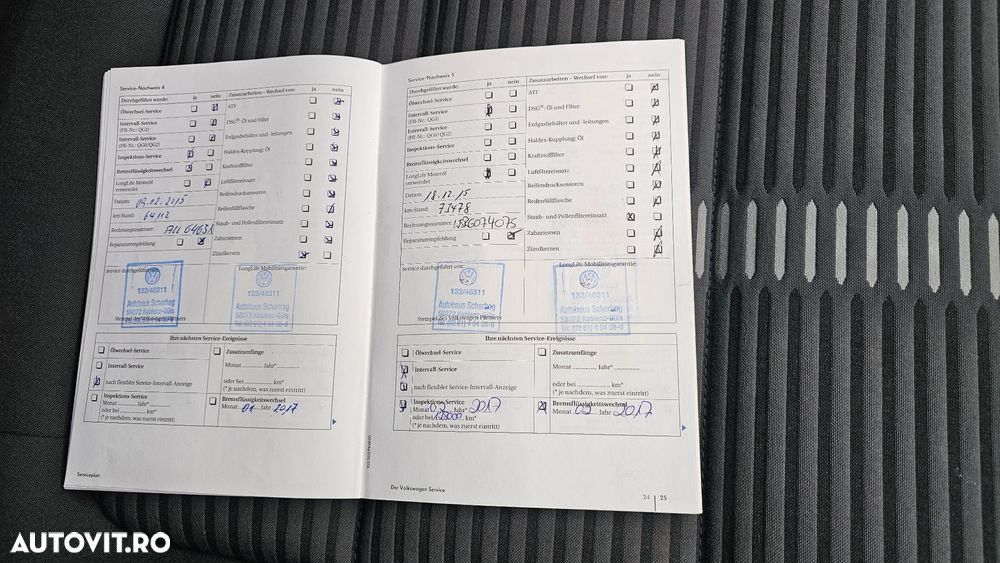 Service-Nachweis 4
ja nein
Durchgeführt wurde:
Ölwechsel-Service
Intervall-Service
(PR-Nr.: QG1)
Intervall-Service
(PR-Nr.: QG0/QG2)
Inspektions-Service
Bremsflüssigkeitswechsel
LongLife Motoröl
verwendet
Datum:
km-Stand: 64112
Rechnungsnummer:
Reparaturempfehlung
Zusatzarbeiten – Wechsel von: ja nein
ATF
DSG®: Öl und Filter
Erdgasbehälter und -leitungen
Haldex-Kupplung: Öl
Kraftstofffilter
Luftfiltereinsatz
Reifendrucksensoren
Reifenfüllflasche
Staub- und Pollenfiltereinsatz
Zahnriemen
Zündkerzen
Service durchgeführt von:
LongLife Mobilitätsgarantie:
133/46311
Autohaus Scherhag
56072 Koblenz-Güls
Tel. (02 61) 4 04 08-0
133/46311
Autohaus Scherhag
56072 Koblenz-Güls
Tel. (02 61) 4 04 08-0
Stempel des Volkswagen Partners
Ihre nächsten Service-Ereignisse
Ölwechsel-Service
Intervall-Service
nach flexibler Service-Intervall-Anzeige
Zusatzumfänge
Monat Jahr*
oder bei km*
(* je nachdem, was zuerst eintritt)
Inspektions-Service
Monat Jahr*
oder bei km*
(* je nachdem, was zuerst eintritt)
Bremsflüssigkeitswechsel
Monat 01 Jahr 2017
Serviceplan
Service-Nachweis 5
ja nein
Durchgeführt wurde:
Ölwechsel-Service
Intervall-Service
(PR-Nr.: QG1)
Intervall-Service
(PR-Nr.: QG0/QG2)
Inspektions-Service
Bremsflüssigkeitswechsel
LongLife Motoröl
verwendet
Datum: 18.12.15
km-Stand: 73478
Rechnungsnummer:
Reparaturempfehlung
Zusatzarbeiten – Wechsel von: ja nein
ATF
DSG®: Öl und Filter
Erdgasbehälter und -leitungen
Haldex-Kupplung: Öl
Kraftstofffilter
Luftfiltereinsatz
Reifendrucksensoren
Reifenfüllflasche
Staub- und Pollenfiltereinsatz
Zahnriemen
Zündkerzen
Service durchgeführt von:
LongLife Mobilitätsgarantie:
133/46311
Autohaus Scherhag
56072 Koblenz-Güls
Tel. (02 61) 4 04 08-0
133/46311
Autohaus Scherhag
56072 Koblenz-Güls
Tel. (02 61) 4 04 08-0
Stempel des Volkswagen Partners
Ihre nächsten Service-Ereignisse
Ölwechsel-Service
Intervall-Service
nach flexibler Service-Intervall-Anzeige
Zusatzumfänge
Monat Jahr*
oder bei km*
(* je nachdem, was zuerst eintritt)
Inspektions-Service
Monat 02 Jahr* 2017
oder bei km*
(* je nachdem, was zuerst eintritt)
Bremsflüssigkeitswechsel
Monat 02 Jahr 2017
Der Volkswagen Service
24 | 25
AUTOVIT.RO